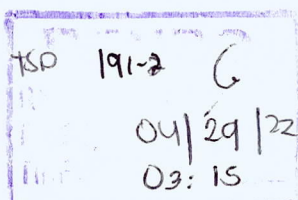 TSP 191-2 G
04/29/22
03:15